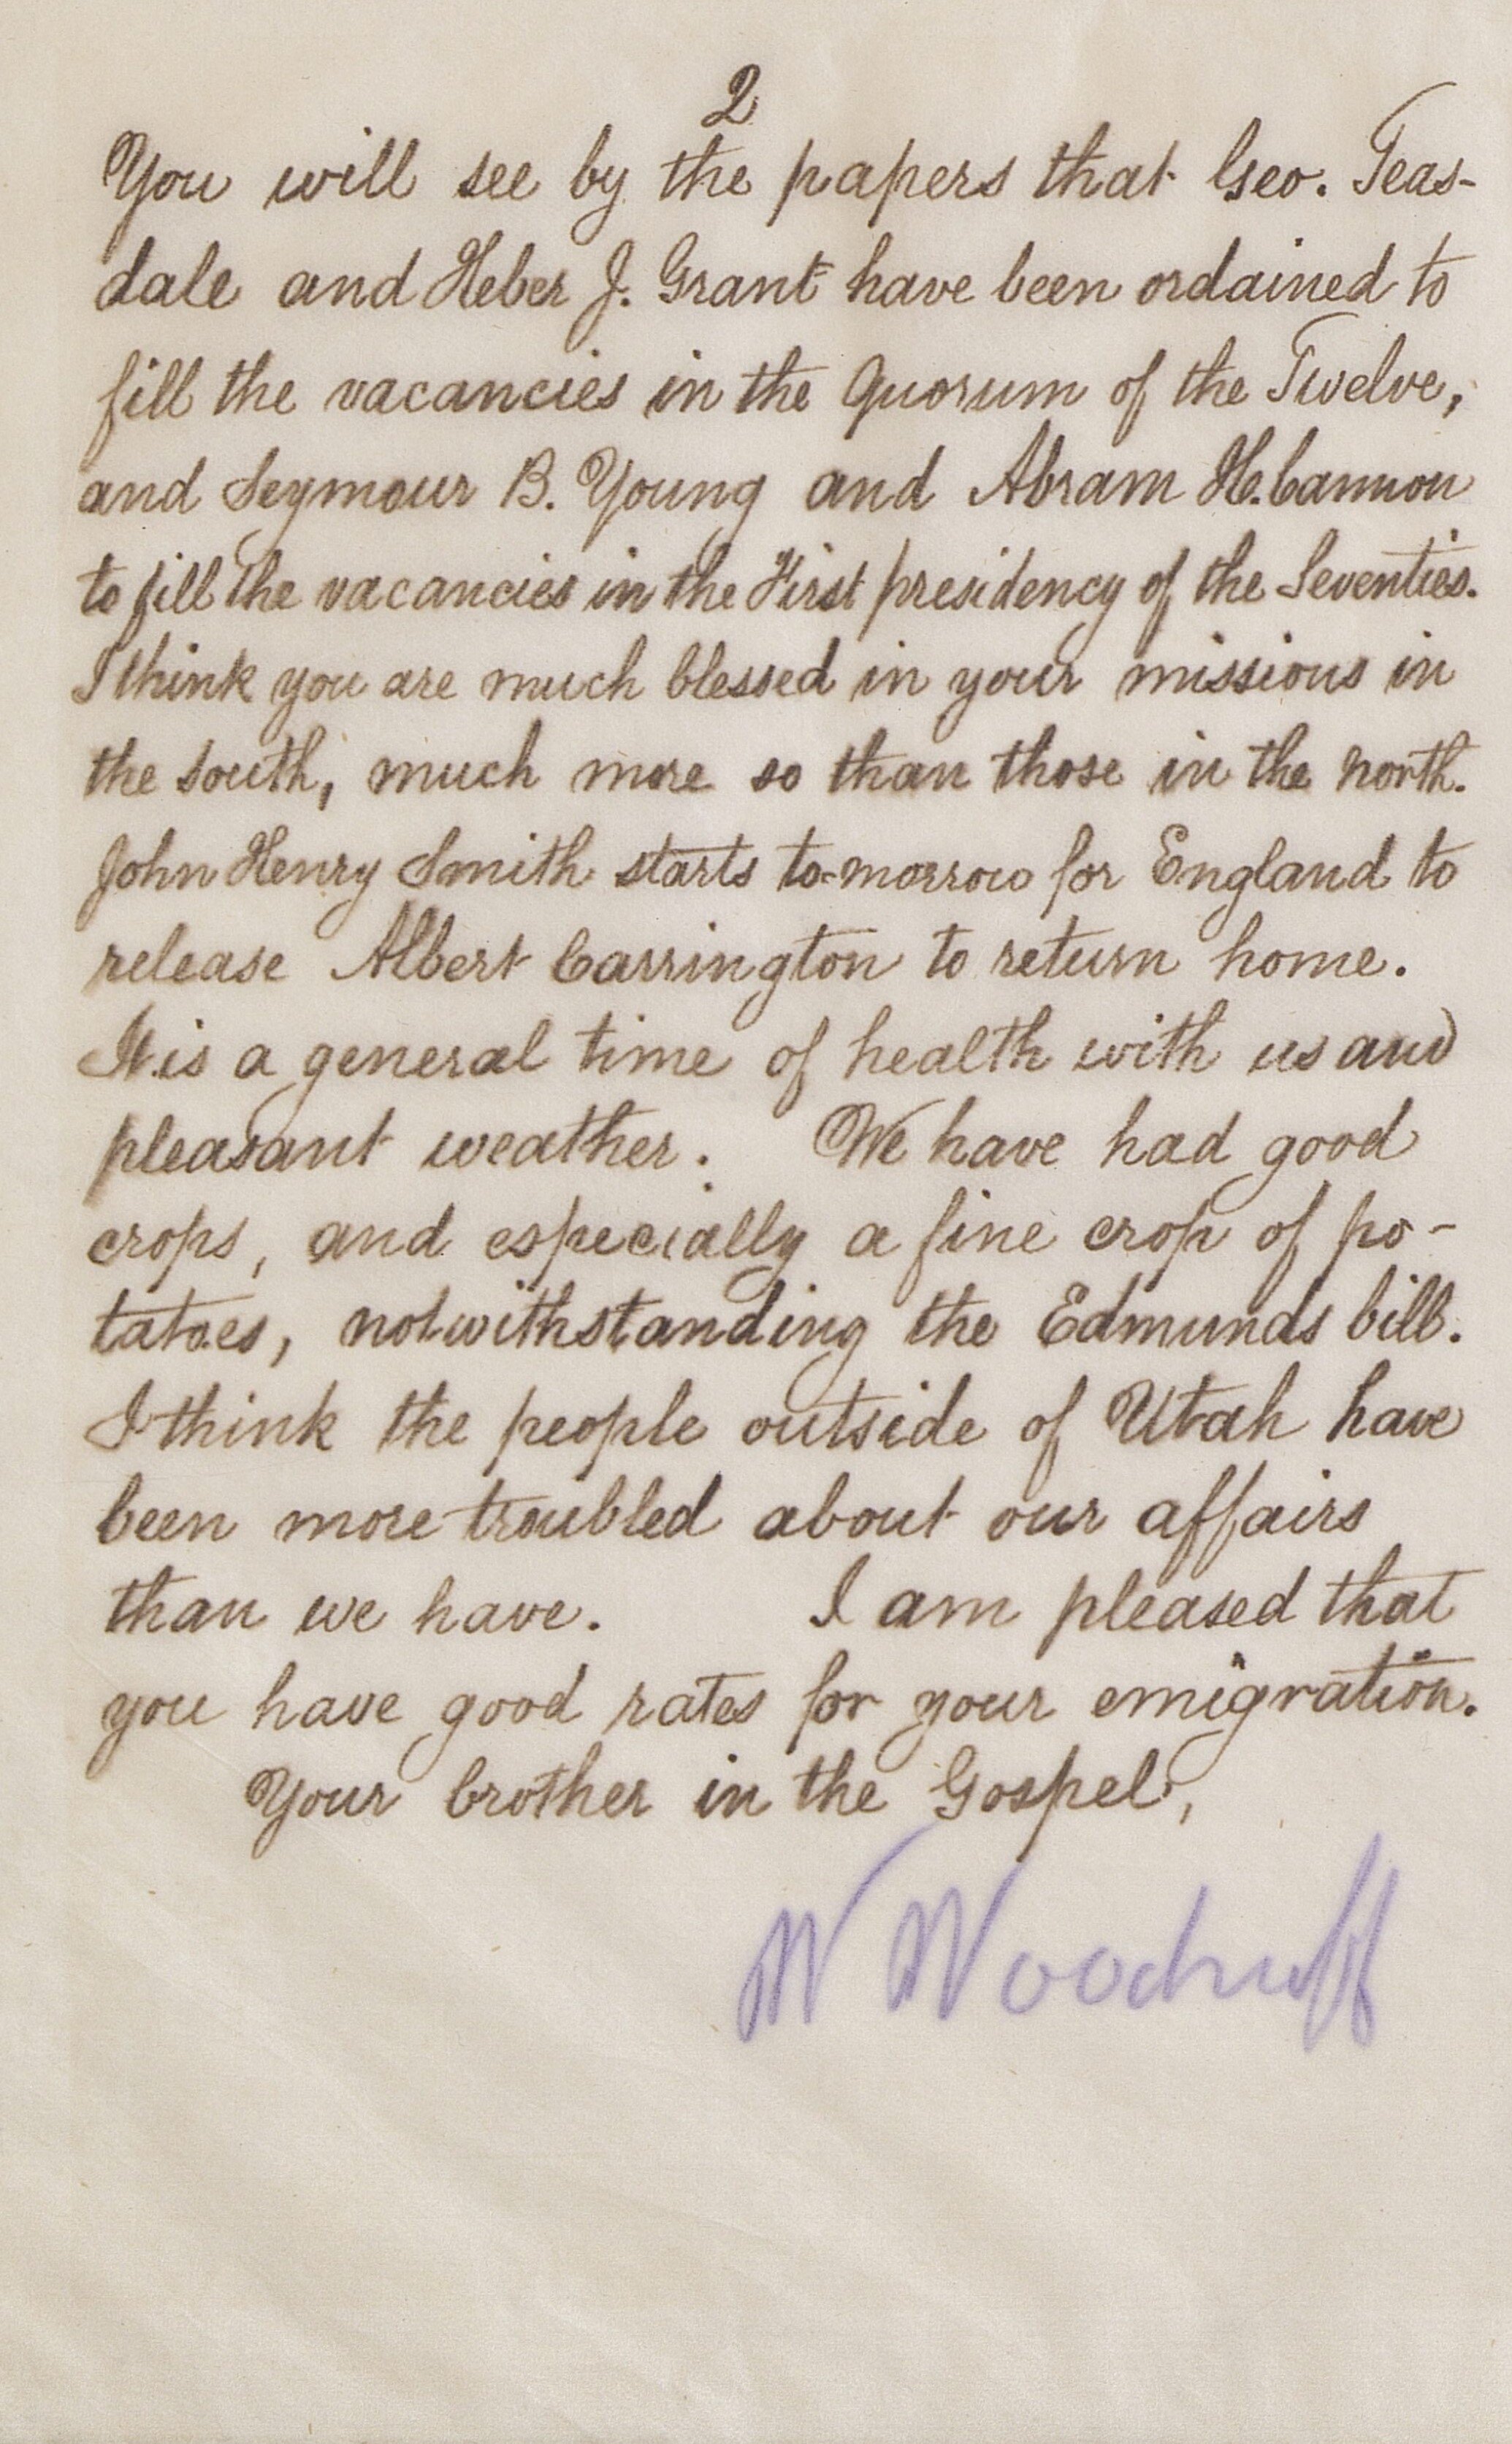 2
You will see by the papers that Geo. Teas-
dale and Heber J. Grant have been ordained to
fill the vacancies in the Quorum of the Twelve,
and Seymour B. Young and Abram H. Cannon
to fill the vacancies in the First presidency of the Seventies.
I think you are much blessed in your missions in
the south, much more so than those in the north.
John Henry Smith starts to-morrow for England to
release Albert Carrington to return home.
It is a general time of health with us and
pleasant weather. We have had good
crops, and especially a fine crop of po-
tatoes, notwithstanding the Edmunds bill.
I think the people outside of Utah have
been more troubled about our affairs
than we have. I am pleased that
you have good rates for your emigration.
Your brother in the Gospel,
W Woodruff